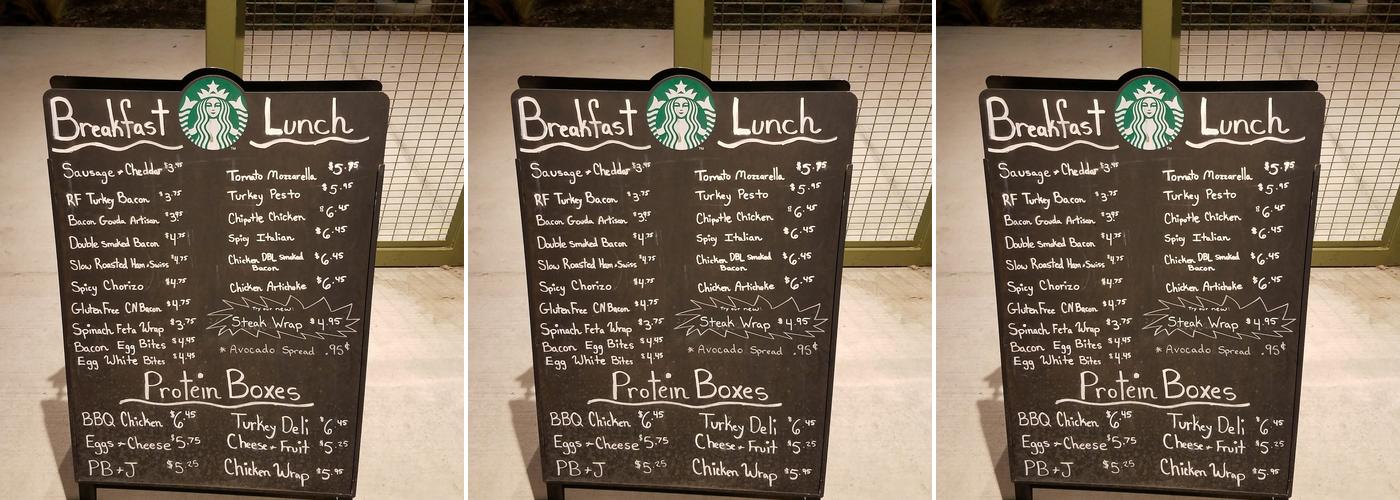 Breakfast
Sausage + Cheddar $3.45
RF Turkey Bacon $3.75
Bacon Gouda Artisan $3.95
Double smoked Bacon $4.75
Slow Roasted Ham & Swiss $4.75
Spicy Chorizo $4.75
Gluten Free CN Bacon $4.75
Spinach Feta Wrap $3.75
Bacon Egg Bites $4.45
Egg White Bites $4.45
Lunch
Tomato Mozzarella $5.75
Turkey Pesto $5.95
Chipotle Chicken $6.45
Spicy Italian $6.45
Chicken DBL smoked
Bacon $6.45
Chicken Artichoke $6.45
Try our new!
Steak Wrap $4.95
* Avocado Spread .95¢
Protein Boxes
BBQ Chicken $6.45
Eggs + Cheese $5.75
PB + J $5.25
Turkey Deli $6.45
Cheese + Fruit $5.25
Chicken Wrap $5.95
Breakfast
Sausage + Cheddar $3.45
RF Turkey Bacon $3.75
Bacon Gouda Artisan $3.95
Double smoked Bacon $4.75
Slow Roasted Ham & Swiss $4.75
Spicy Chorizo $4.75
Gluten Free CN Bacon $4.75
Spinach Feta Wrap $3.75
Bacon Egg Bites $4.45
Egg White Bites $4.45
Lunch
Tomato Mozzarella $5.75
Turkey Pesto $5.95
Chipotle Chicken $6.45
Spicy Italian $6.45
Chicken DBL smoked
Bacon $6.45
Chicken Artichoke $6.45
Try our new!
Steak Wrap $4.95
* Avocado Spread .95¢
Protein Boxes
BBQ Chicken $6.45
Eggs + Cheese $5.75
PB + J $5.25
Turkey Deli $6.45
Cheese + Fruit $5.25
Chicken Wrap $5.95
Breakfast
Sausage + Cheddar $3.45
RF Turkey Bacon $3.75
Bacon Gouda Artisan $3.95
Double smoked Bacon $4.75
Slow Roasted Ham & Swiss $4.75
Spicy Chorizo $4.75
Gluten Free CN Bacon $4.75
Spinach Feta Wrap $3.75
Bacon Egg Bites $4.45
Egg White Bites $4.45
Lunch
Tomato Mozzarella $5.75
Turkey Pesto $5.95
Chipotle Chicken $6.45
Spicy Italian $6.45
Chicken DBL smoked
Bacon $6.45
Chicken Artichoke $6.45
Try our new!
Steak Wrap $4.95
* Avocado Spread .95¢
Protein Boxes
BBQ Chicken $6.45
Eggs + Cheese $5.75
PB + J $5.25
Turkey Deli $6.45
Cheese + Fruit $5.25
Chicken Wrap $5.95